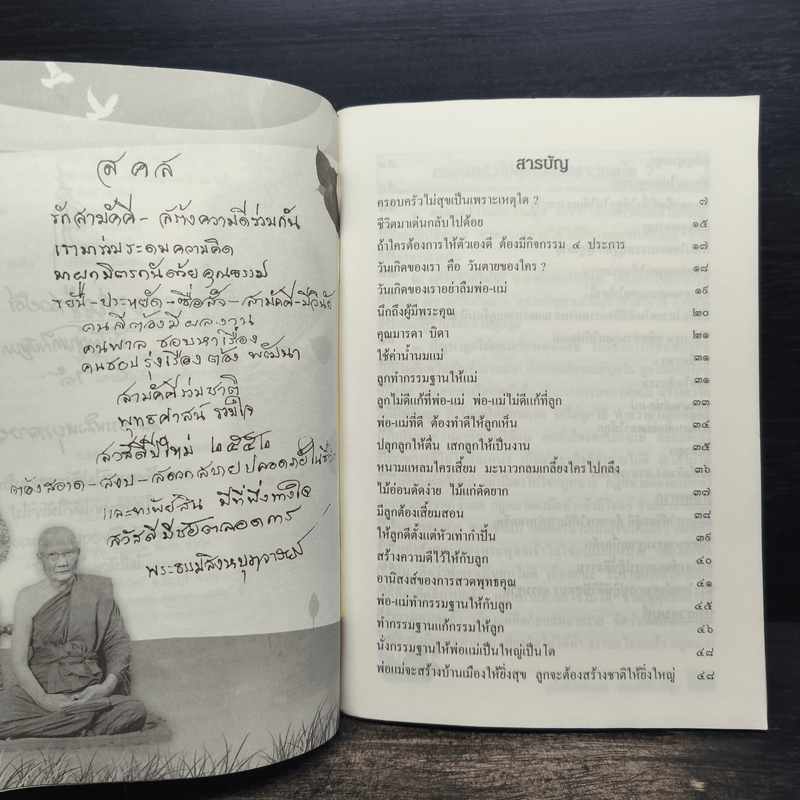 ส ค ส
รักสามัคคี - สร้างความดีร่วมกัน
เรามาร่วมระดมความคิด
มาผูกมิตรกันด้วยคุณธรรม
ขยัน - ประหยัด - ซื่อสัตย์ - สามัคคี - มีวินัย
คนดีต้องมีผลงาน
คนพาล ชอบหาเรื่อง
คนชอบรุ่งเรือง ต้องพัฒนา
สามัคคีร่วมชาติ
พุทธศาสน์ รวมใจ
สวัสดีปีใหม่ ๒๕๕๒
ต้องสะอาด - สงบ - สะดวกสบาย ปลอดภัยใน
และทรัพย์สิน มีที่พึ่งทางใจ
สวัสดีมีชัยตลอดกาล
พระธรรมสิงหบุราจารย์
สารบัญ
ครอบครัวไม่สุขเป็นเพราะเหตุใด ? ๗
ชีวิตมาเด่นกลับไปด้อย ๑๕
ถ้าใครต้องการให้ตัวเองดี ต้องมีกิจกรรม ๔ ประการ ๑๗
วันเกิดของเรา คือ วันตายของใคร ? ๑๘
วันเกิดของเราอย่าลืมพ่อ-แม่ ๑๙
นึกถึงผู้มีพระคุณ ๒๐
คุณมารดา บิดา ๒๑
ใช้ค่าน้ำนมแม่ ๓๑
ลูกทำกรรมฐานให้แม่ ๓๑
ลูกไม่ดีแก้ที่พ่อ-แม่ พ่อ-แม่ไม่ดีแก้ที่ลูก ๓๓
พ่อ-แม่ที่ดี ต้องทำดีให้ลูกเห็น ๓๔
ปลุกลูกให้ตื่น เสกลูกให้เป็นงาน ๓๕
หนามแหลมใครเสี้ยม มะนาวกลมเกลี้ยงใครไปกลึง ๓๖
ไม้อ่อนดัดง่าย ไม้แก่ดัดยาก ๓๗
มีลูกต้องเสี้ยมสอน ๓๘
ให้ลูกดีตั้งแต่หัวเท่ากำปั้น ๓๙
สร้างความดีไว้ให้กับลูก ๔๐
อานิสงส์ของการสวดพุทธคุณ ๔๑
พ่อ-แม่ทำกรรมฐานให้กับลูก ๔๕
ทำกรรมฐานแก้กรรมให้ลูก ๔๖
นั่งกรรมฐานให้พ่อแม่เป็นใหญ่เป็นโต ๔๘
พ่อแม่จะสร้างบ้านเมืองให้ยิ่งสุข ลูกจะต้องสร้างชาติให้ยิ่งใหญ่ ๔๘